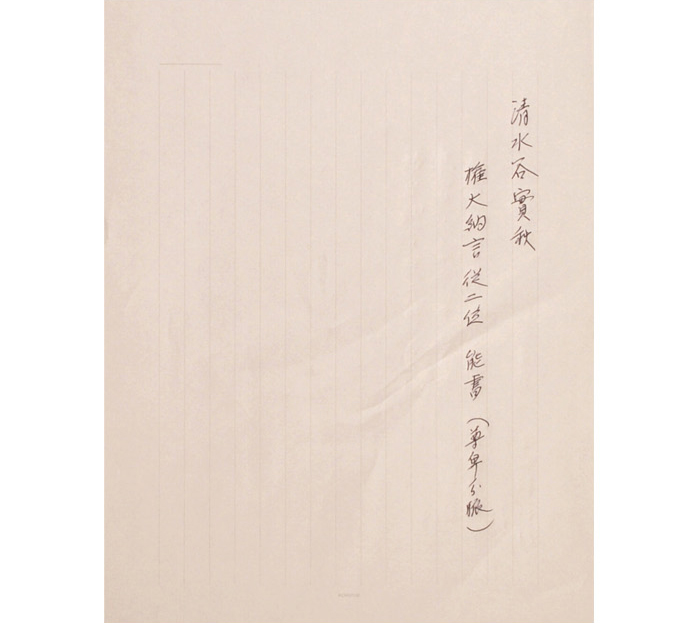 清水谷實秋
権大納言従二位　能書（尊卑分脈）